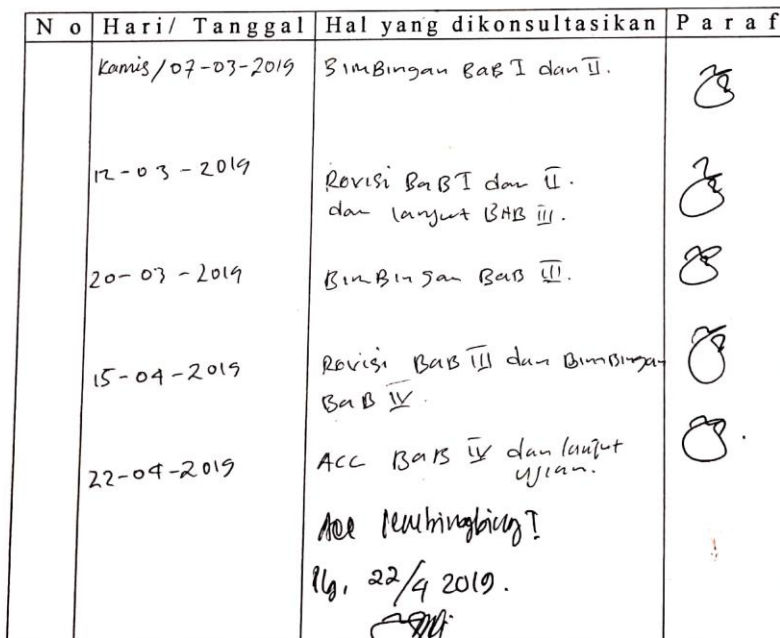 N o Hari/ Tanggal Hal yang dikonsultasikan P a r a f
Kamis/07-03-2019 BimBingan BaB I dan II.
12-03-2019 Revisi BaB I dan II.
dan lanjut BAB III.
20-03-2019 BimBingan BaB III.
15-04-2019 Revisi BaB III dan BimBingan
BaB IV.
22-04-2019 ACC BaB IV dan lanjut
ujian.
Acc Pembingbing I
22/4 2019.